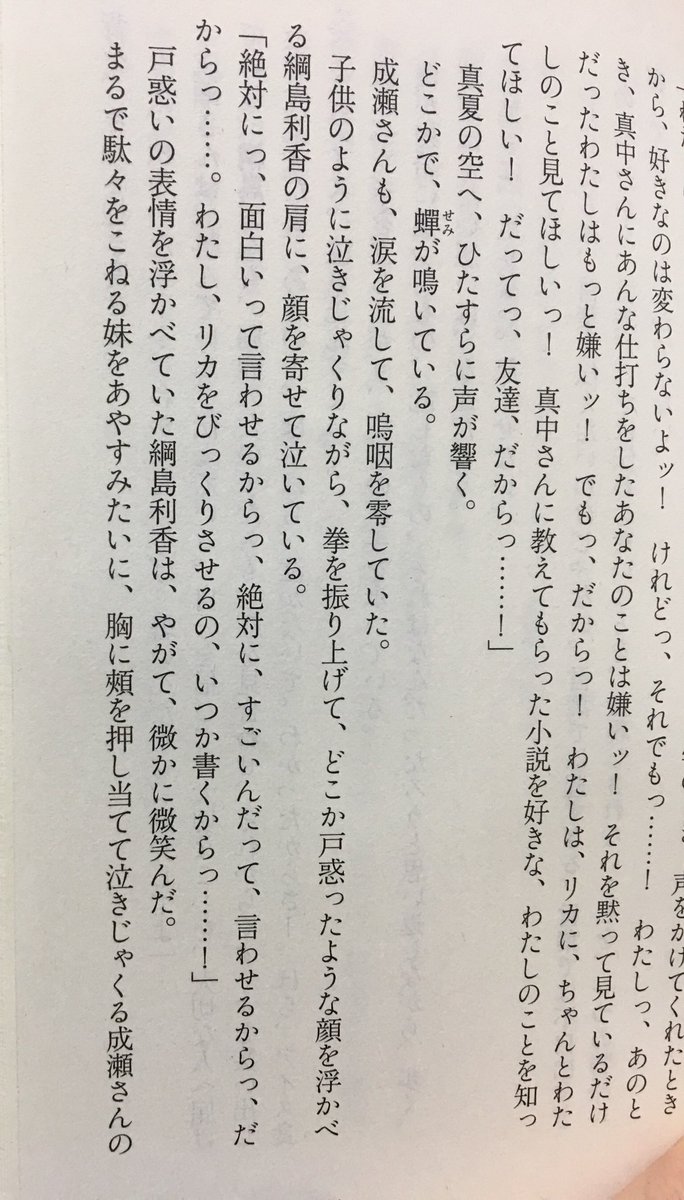 声をかけてくれたとき
から、好きなのは変わらないよッ！　けれどっ、それでもっ……！　わたしっ、あのと
き、真中さんにあんな仕打ちをしたあなたのことは嫌いッ！　それを黙って見ているだけ
だったわたしはもっと嫌いッ！　でもっ、だからっ！　わたしは、リカに、ちゃんとわた
しのこと見てほしいっ！　真中さんに教えてもらった小説を好きな、わたしのことを知っ
てほしい！　だってっ、友達、だからっ……！」
真夏の空へ、ひたすらに声が響く。
どこかで、蟬せみが鳴いている。
成瀬さんも、涙を流して、嗚咽を零していた。
子供のように泣きじゃくりながら、拳を振り上げて、どこか戸惑ったような顔を浮かべ
る綱島利香の肩に、顔を寄せて泣いている。
「絶対にっ、面白いって言わせるからっ、絶対に、すごいんだって、言わせるからっ、だ
からっ……。わたし、リカをびっくりさせるの、いつか書くからっ……！」
戸惑いの表情を浮かべていた綱島利香は、やがて、微かに微笑んだ。
まるで駄々をこねる妹をあやすみたいに、胸に頰を押し当てて泣きじゃくる成瀬さんの